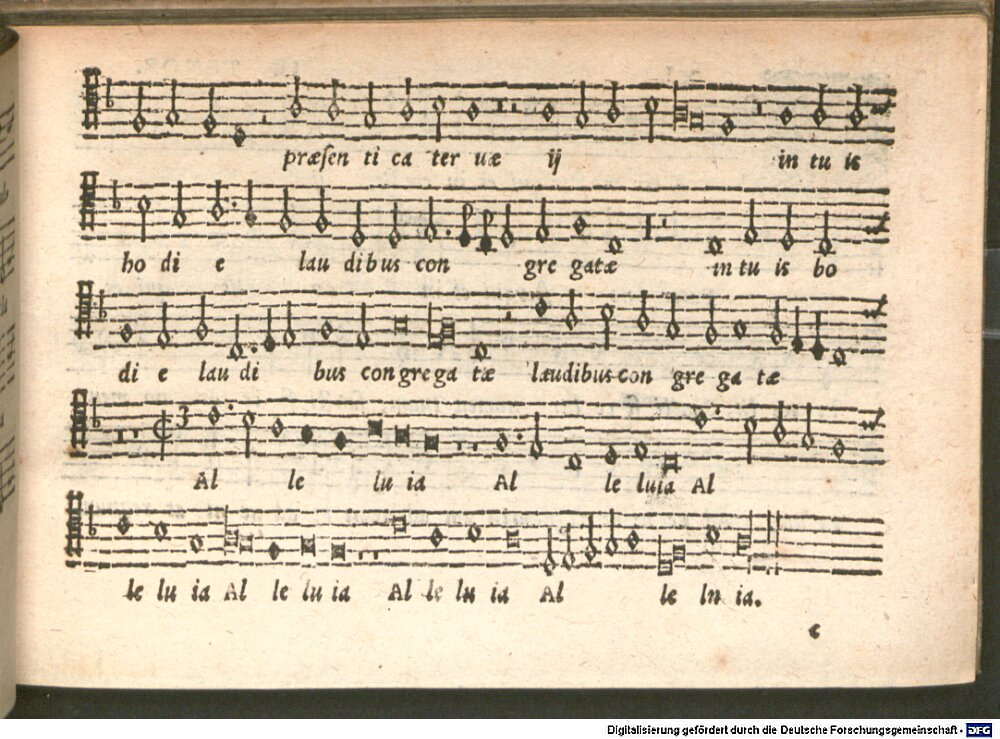 præſen ti ca ter uæ ij in tu is
ho di e lau dibus con gre gatæ in tu is bo
di e lau di bus con gre ga tæ laudibus con gre ga tæ
3
Al le lu ia Al le luia Al
le lu ia Al le lu ia Al le lu ia Al le ln ia.
c
Digitalisierung gefördert durch die Deutsche Forschungsgemeinschaft - DFG